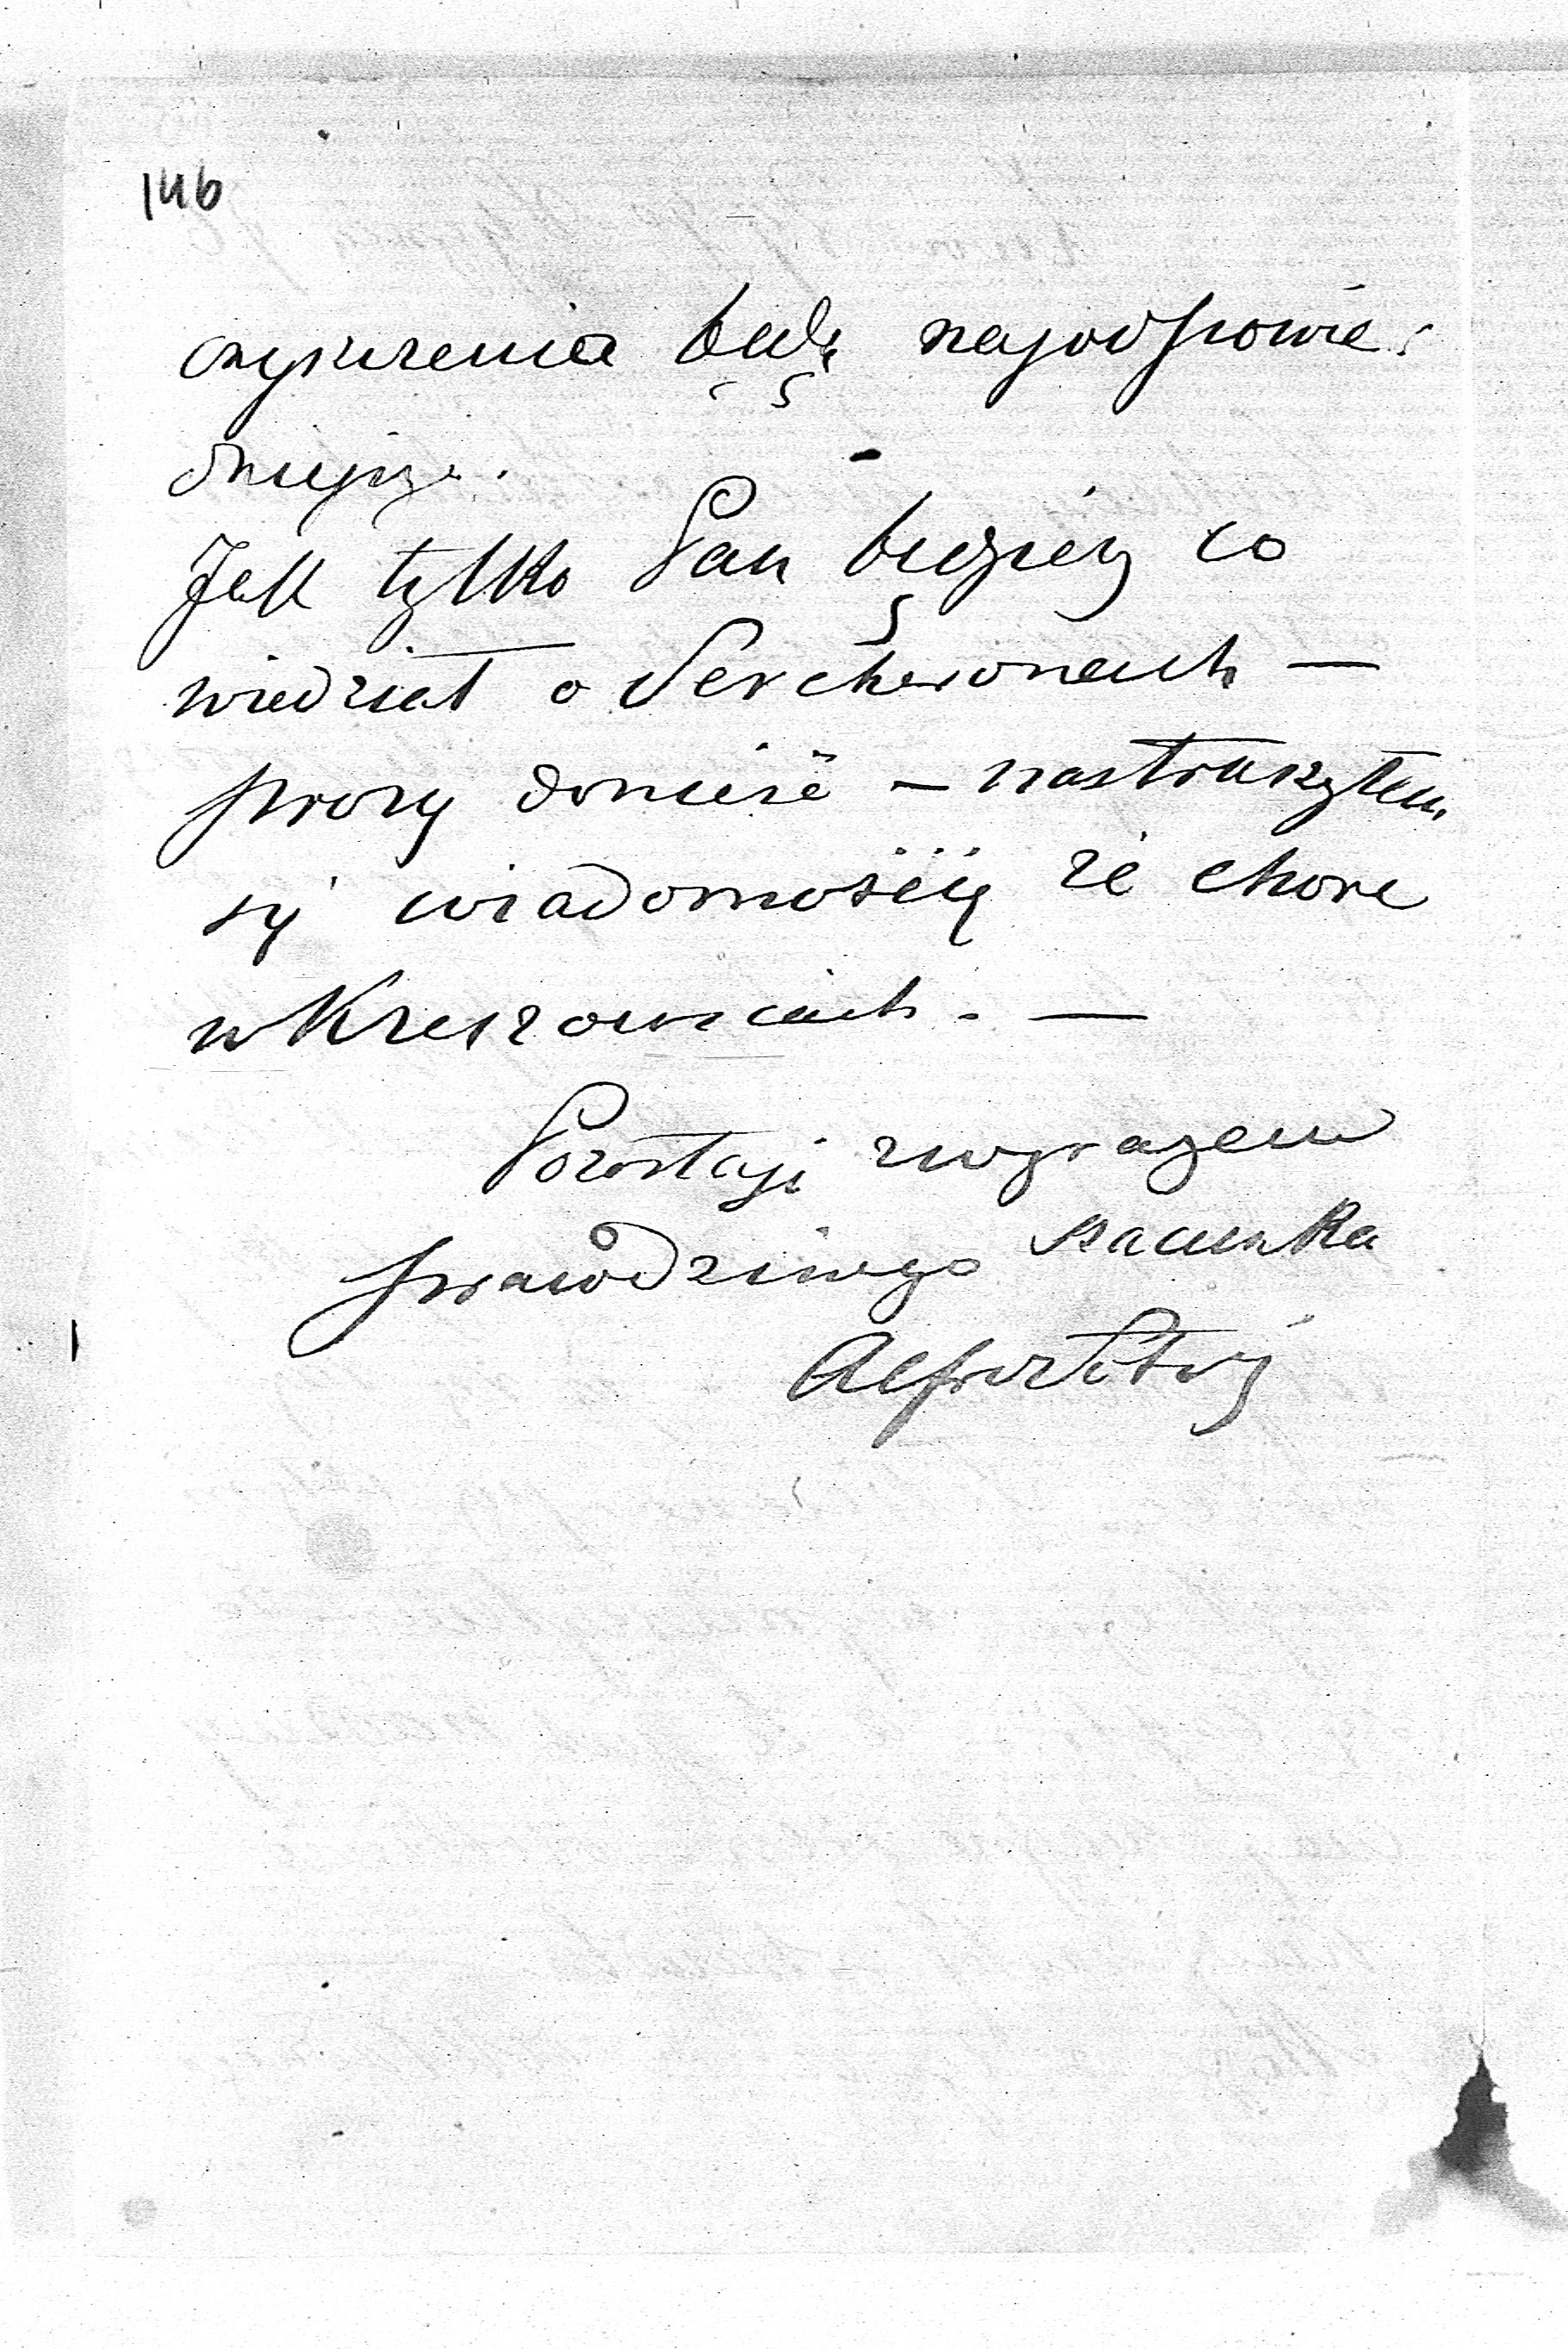 146
będą najodpowie-
dniejsze.
Jak tylko Pan będzie co
wiedział o Percheronach —
proszę donieść — nastraszyłem
się wiadomością że chore
w Krzeszowicach. —
Pozostaję z wyrazem
prawdziwego szacunku